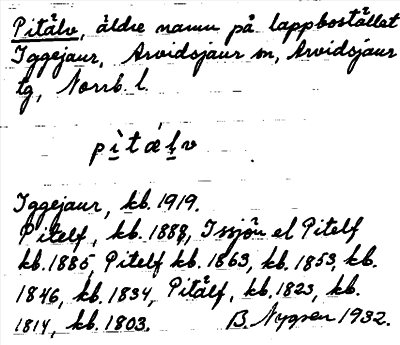 Pitålv, äldre namn på lappbostället
Iggejaur, Arvidsjaur sn, Arvidsjaur
tg, Norrb. l.
pìtæ̀ḷv
Iggejaur, kb. 1919.
Pitelf, kb. 1888, Issjön el Pitelf
kb. 1885, Pitelf kb. 1863, kb. 1853, kb.
1846, kb. 1834, Pitålf, kb. 1823, kb.
1814, kb. 1803. B. Nygren 1932.